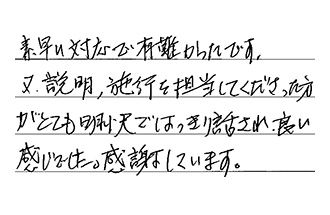 素早い対応で有難かったです。
又、説明、施行を担当してくださった方
がとても明快ではっきり話され、良い
感じでした。感謝しています。